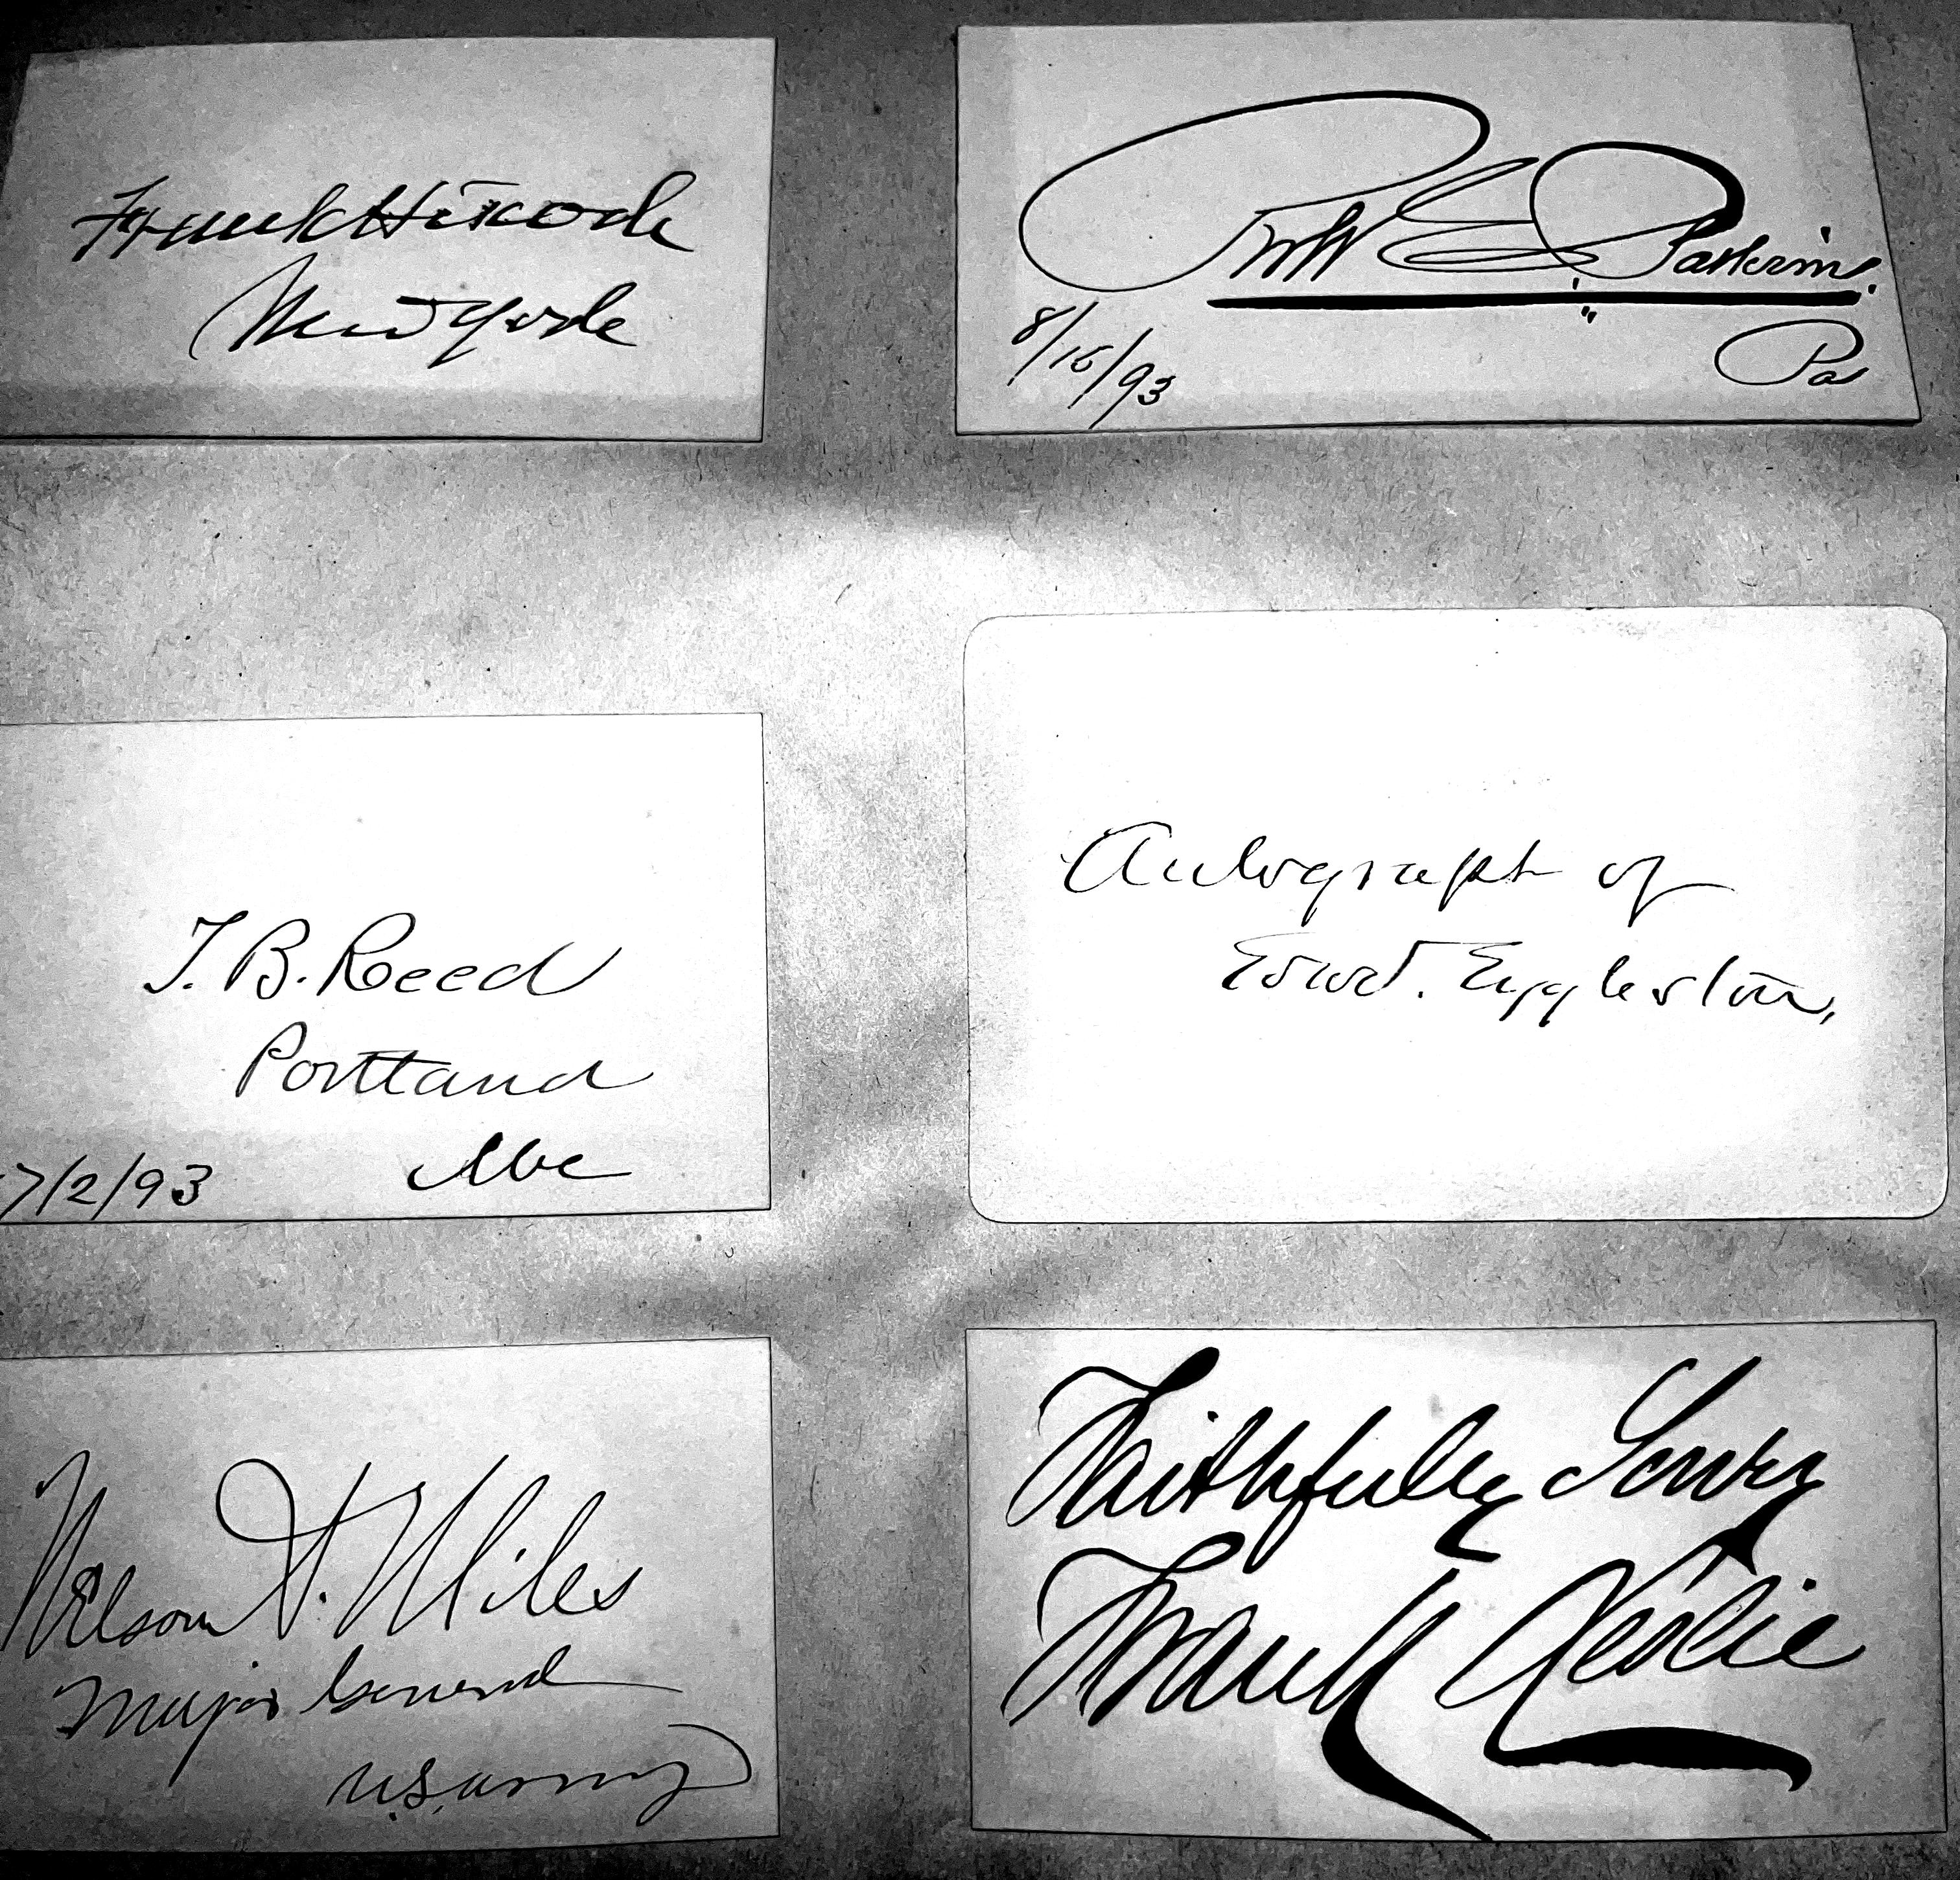 Frank Hiscock
New York
Robt E Pattison
8/15/93
Pa
T. B. Reed
Portland
Me
7/2/93
Autograph of
Edwd. Eggleston,
Nelson A. Miles
Major General
U.S. Army
Faithfully Yours
Frank Leslie